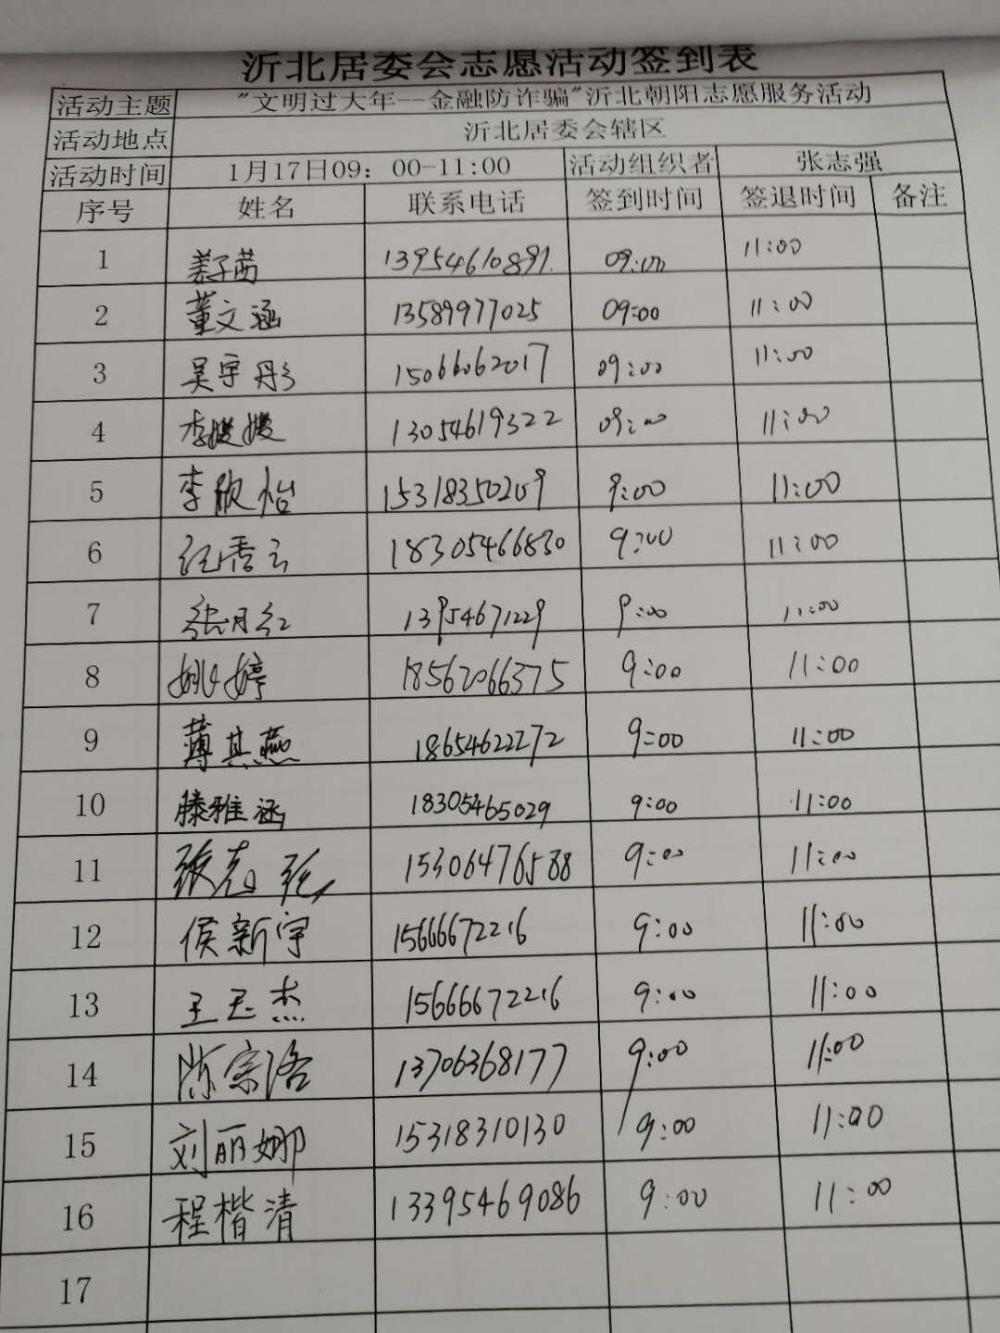 沂北居委会志愿活动签到表
活动主题 "文明过大年--金融防诈骗"沂北朝阳志愿服务活动
活动地点 沂北居委会辖区
活动时间 1月17日09：00-11:00 活动组织者 张志强
序号 姓名 联系电话 签到时间 签退时间 备注
1 姜子茜 13954610891 09:00 11:00
2 董文涵 13589977025 09:00 11:00
3 吴宇彤 15066062017 09:00 11:00
4 李媛媛 13054619322 09:00 11:00
5 李欣怡 15318350209 9:00 11:00
6 江秀云 18305466830 9:00 11:00
7 张月红 13954671229 9:00 11:00
8 姚婷 18562066375 9:00 11:00
9 薄其燕 18654622272 9:00 11:00
10 滕雅涵 18305465029 9:00 11:00
11 张志强 15306476588 9:00 11:00
12 侯新宇 15666672216 9:00 11:00
13 王玉杰 15666672216 9:00 11:00
14 陈宗洛 13706368177 9:00 11:00
15 刘丽娜 15318310130 9:00 11:00
16 程楷清 13395469086 9:00 11:00
17